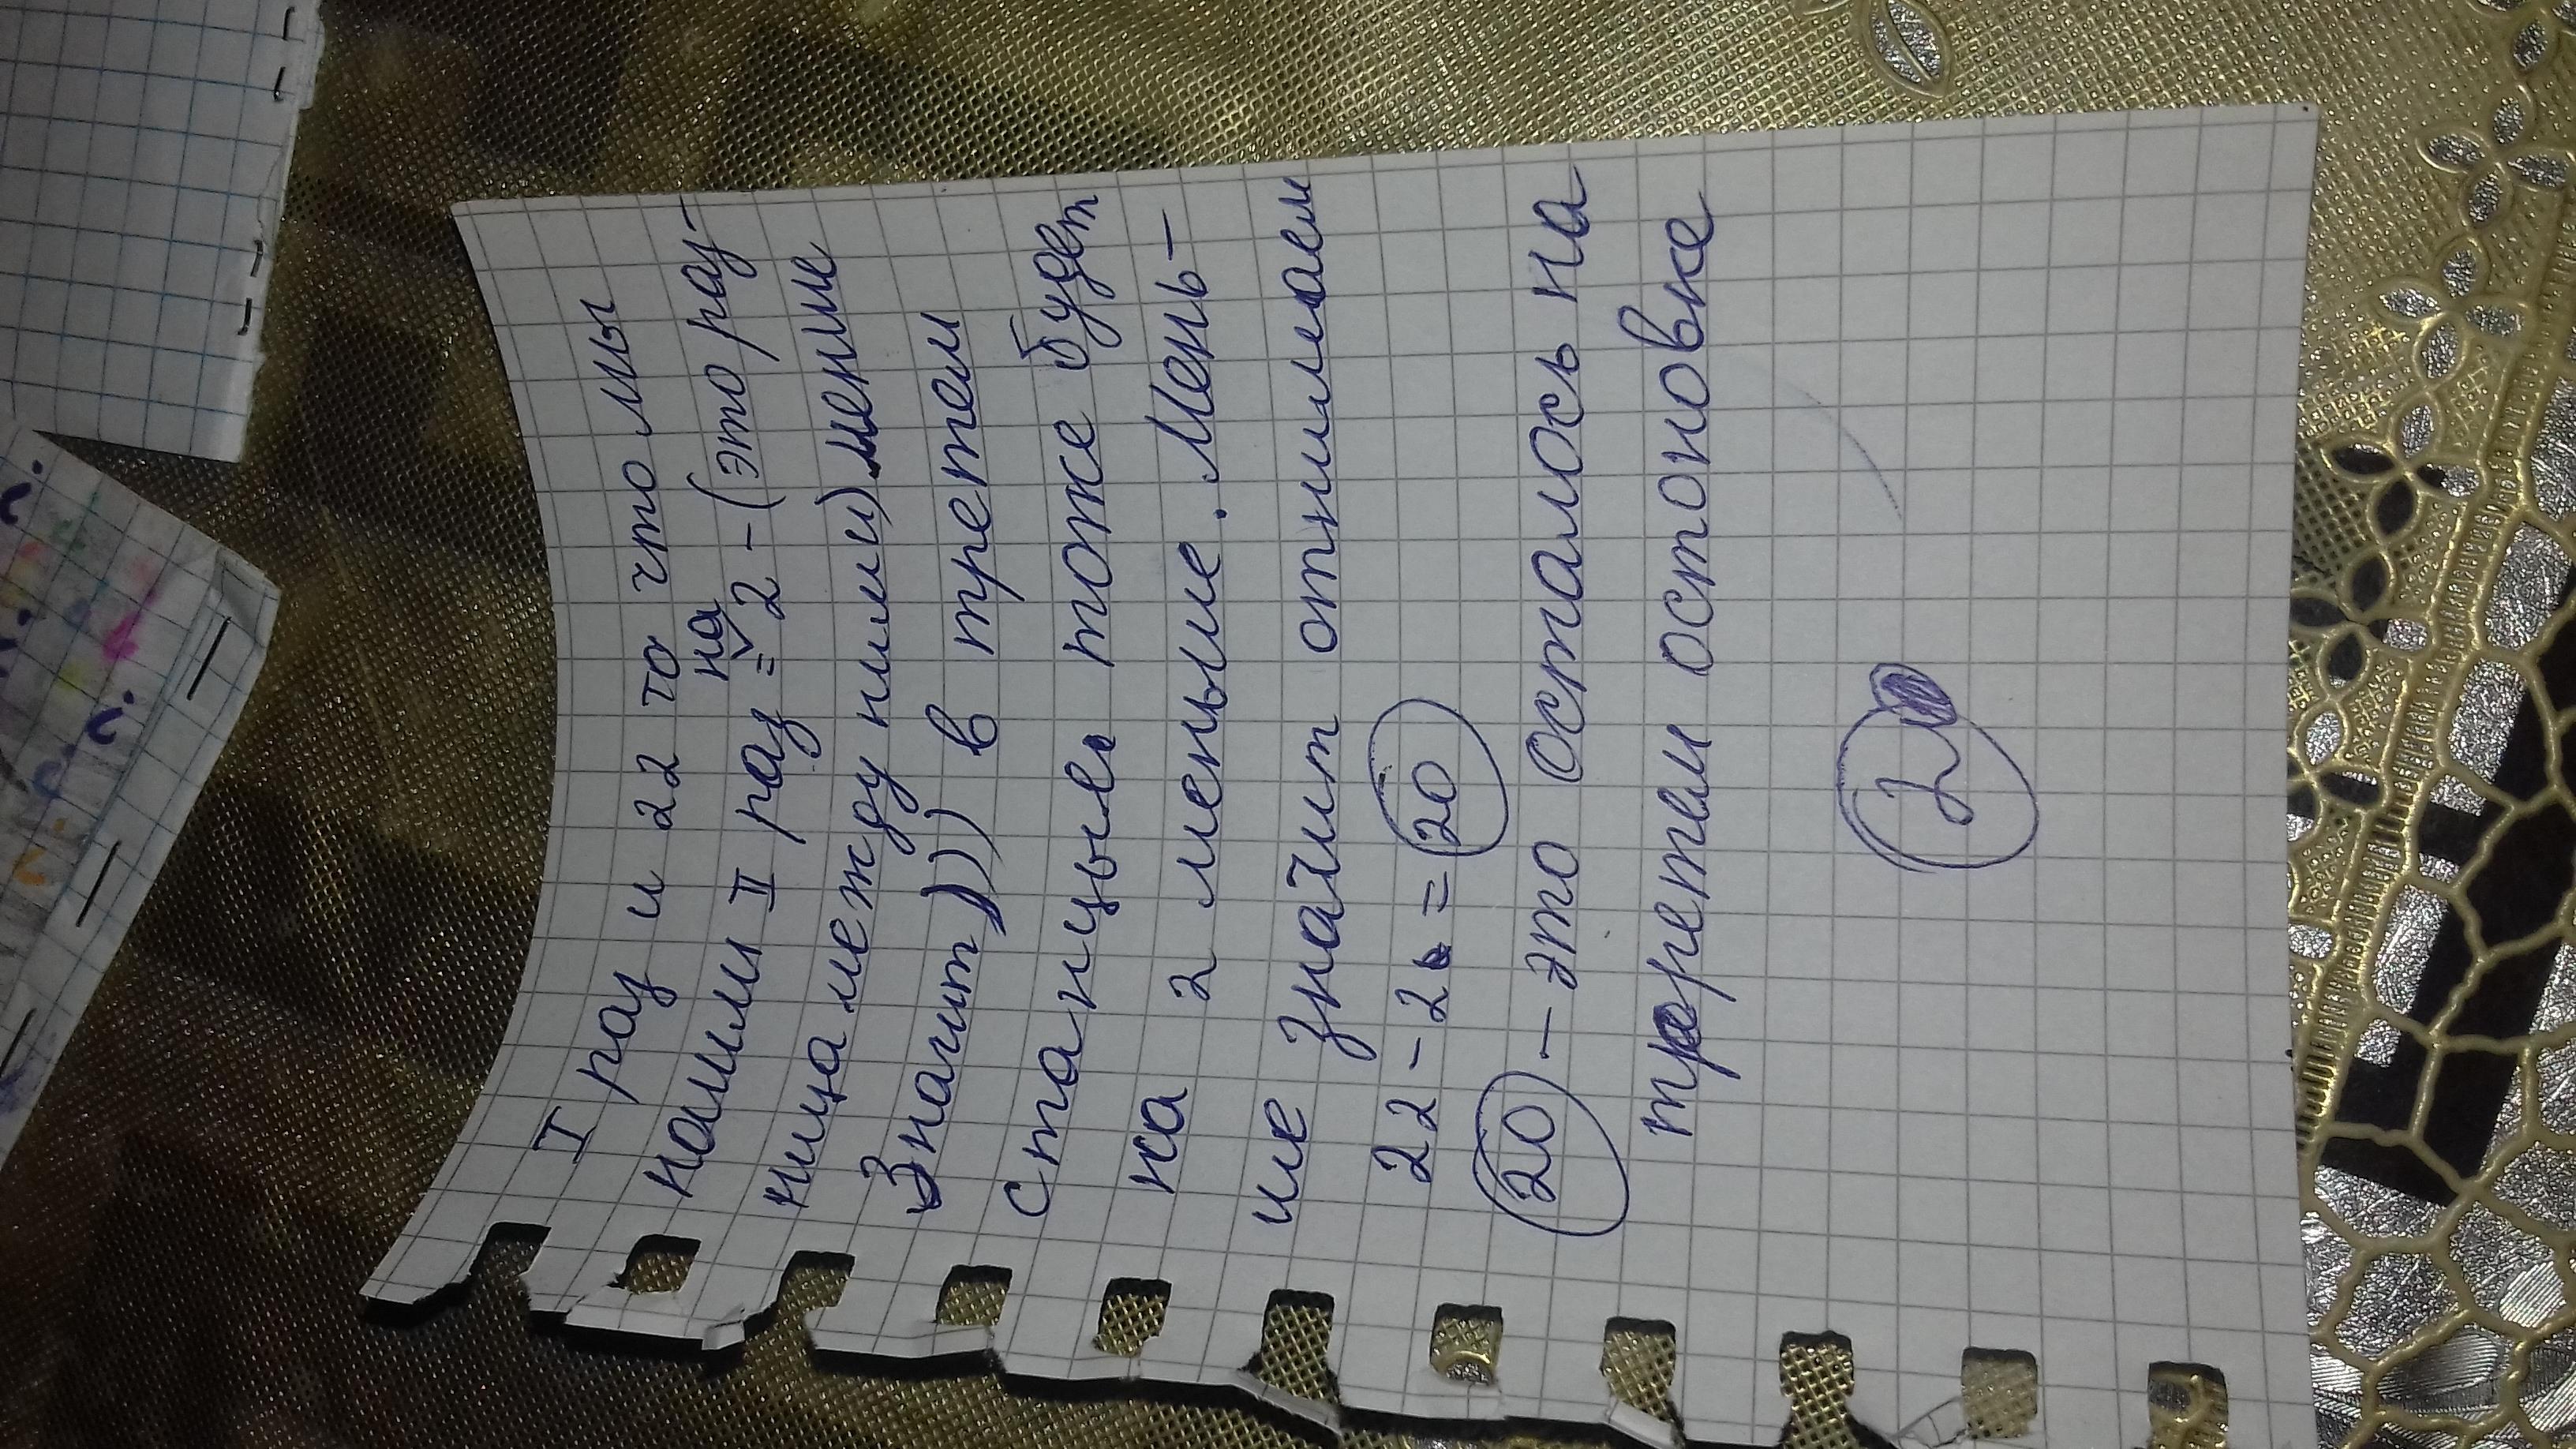 I раз и 22 то что мы
на
нашли II раз = 2 - (это раз-
ница между ними) менше
Значит))) в третем
станцыы тоже будет
на 2 меньше. Мень-
ше значит отнимаем
22 - 2 = 20
20 - это осталось на
третем остоновке
2